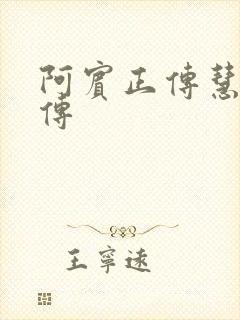 阿賓正傳慧
傳
王寧遠